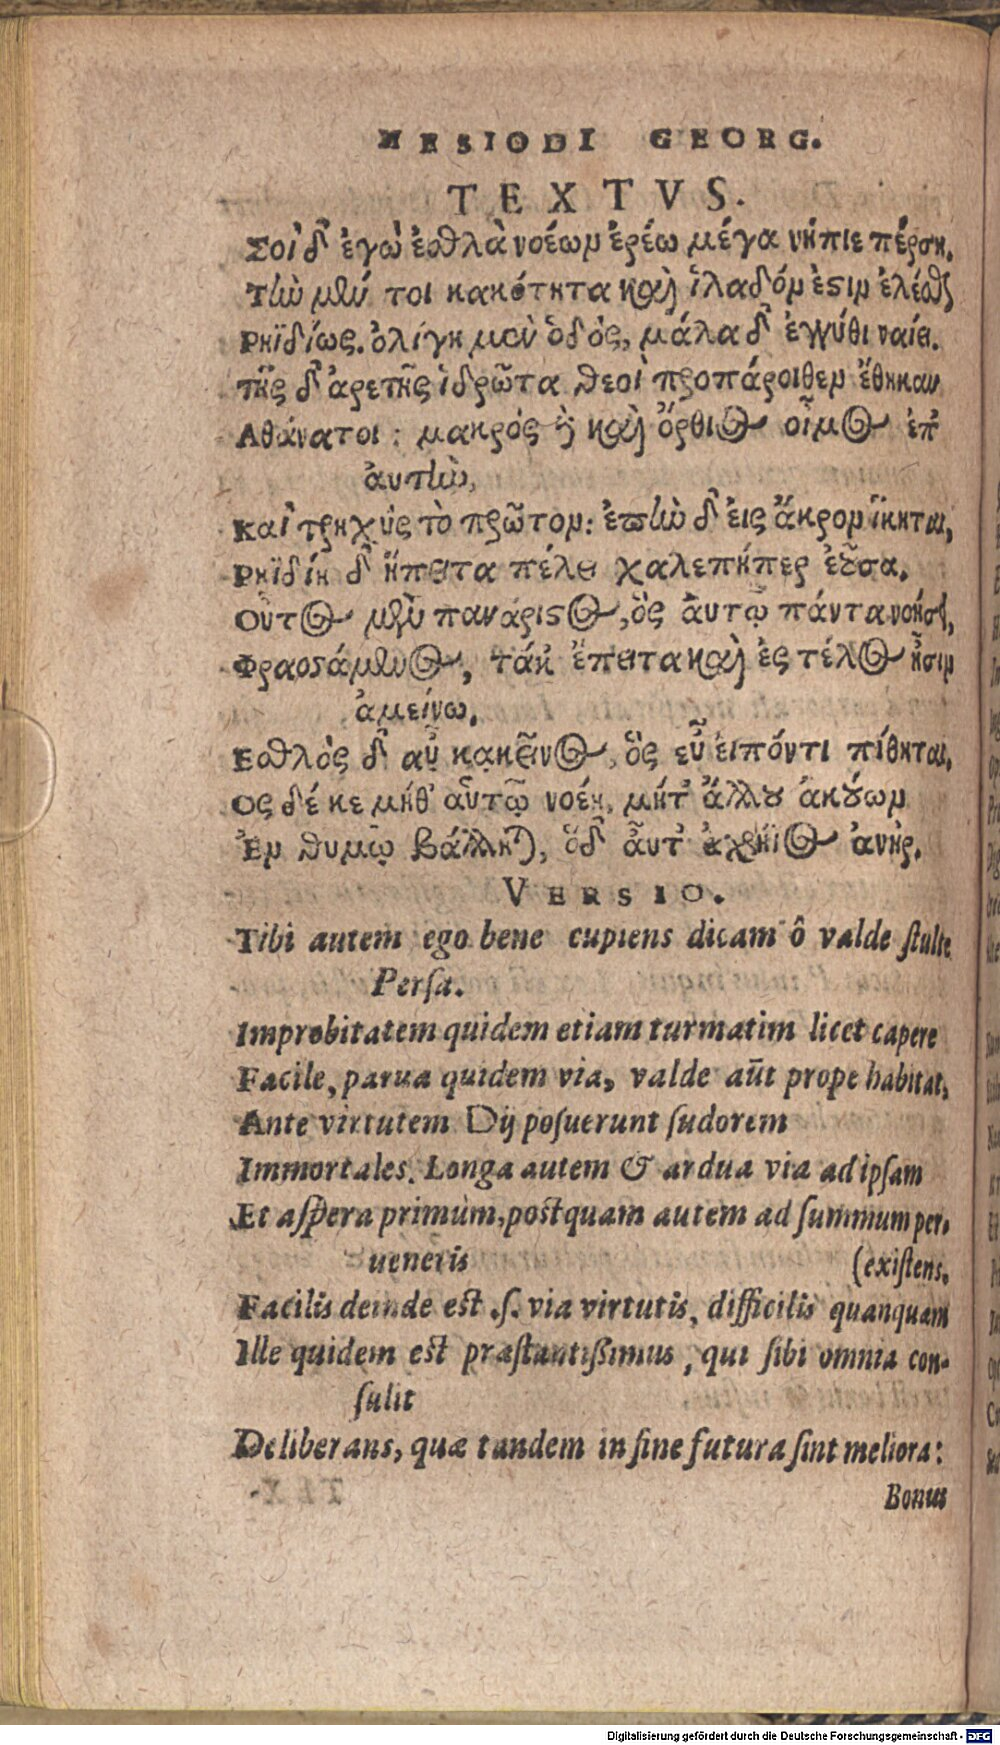 HESIODI GEORG.
TEXTVS.
Σοὶ δ᾽ ἐγὼ ἐσθλὰ νοέων ἐρέω μέγα νήπιε πέρση.
Τὼ μέν τοι κακότητα καὶ ἰλαδόν ἐστιν ἑλέσθαι
Ρηϊδίως. ὀλίγη μὲν ὁδὸς, μάλα δ᾽ ἐγγύθι ναίει.
τῆς δ᾽ ἀρετῆς ἱδρῶτα θεοὶ προπάροιθεν ἔθηκαν
Αθάνατοι: μακρὸς δὲ καὶ ὄρθιος οἶμος ἐπ᾽
ἀυτὴν,
Καὶ τρηχὺς τὸ πρῶτον: ἐπὴν δ᾽ εἰς ἄκρον ἵκηται,
Ρηϊδίη δ᾽ ἤπειτα πέλει χαλεπήπερ ἐοῦσα.
Οὗτος μὲν πανάριστος, ὃς ἀυτῷ πάντα νοήσει,
Φρασσάμενος, τάκ᾽ ἔπειτα καὶ ἐς τέλος ᾖσιν
ἀμείνω,
Εσθλὸς δ᾽ αὖ κακεῖνος, ὃς εὖ εἰπόντι πίθηται,
Ος δέ κε μήθ᾽ αὑτῷ νοέη, μήτ᾽ ἄλλου ἀκούων
Ἐν θυμῷ βάλληται, ὅδ᾽ αὖτ᾽ ἀχρήϊος ἀνήρ.
VERSIO.
Tibi autem ego bene cupiens dicam ô valde stulte
Persa.
Improbitatem quidem etiam turmatim licet capere
Facile, parua quidem via, valde aūt prope habitat,
Ante virtutem Dij posuerunt sudorem
Immortales. Longa autem & ardua via ad ipsam
Et aspera primùm, postquam autem ad summum per-
ueneris (existens.
Facilis deinde est .s. via virtutis, difficilis quanquam
Ille quidem est præstantissimus, qui sibi omnia con-
sulit
Deliberans, quæ tandem in fine futura sint meliora:
Bonus
Digitalisierung gefördert durch die Deutsche Forschungsgemeinschaft - DFG